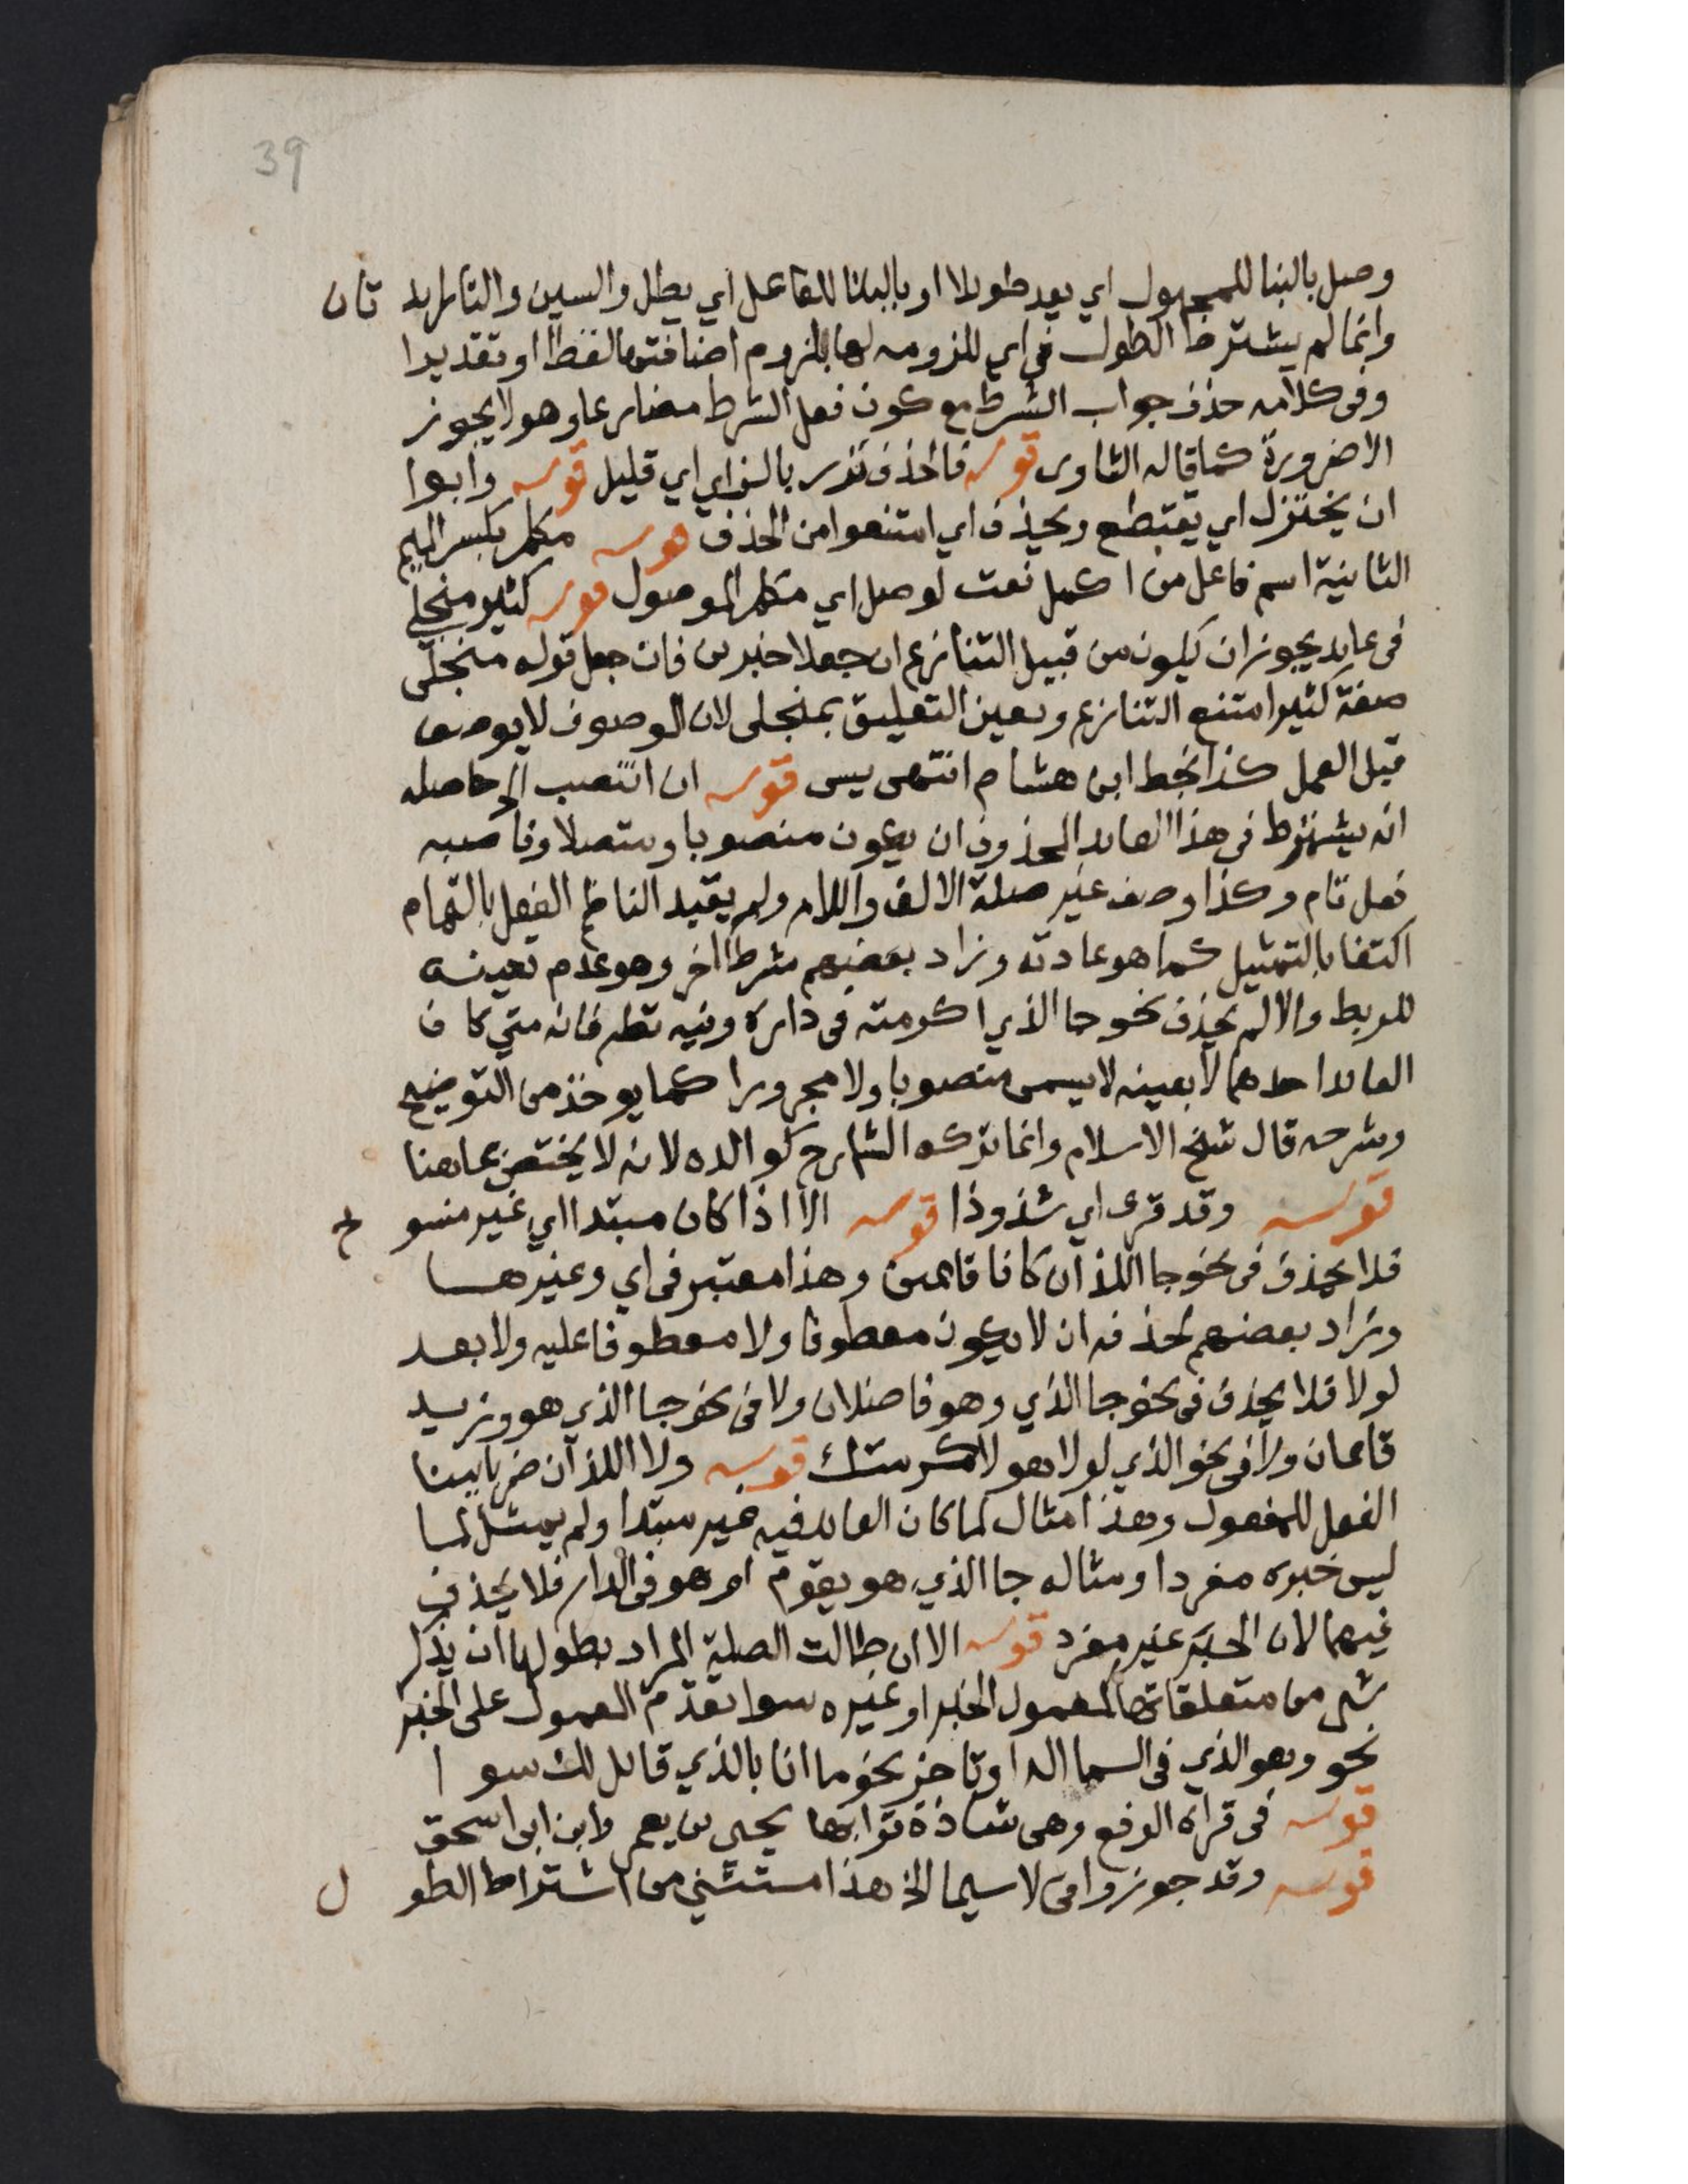 39
وصل بالبنا للمجهول اي يعد طويلا او بالبنا للفاعل اي يطل والسين والتا زايد تان
وانما لم يشترط الطول في اي الملزومه لها للزوم اضافتها لفظا او تقديرا
وفي كلامه حذف جواب الشرط مع كون فعل الشرط مضارعا وهو لا يجوز
الا ضرورة كما قاله الشاوى قوله فالحذف نزر بالزاي اي قليل قوله وابوا
ان يختزل اي يقتطع ويحذف اي امتنعوا من الحذف قوله مكمل بكسر الميم
الثانية اسم فاعل من اكمل نعت لوصل اي مكمل الموصول قوله كثير منجلي
في عايد يجوز ان يكون من قبيل التنازع ان جعلا خبرين فان جعل قوله منجلى
صفة كثير امتنع التنازع وتعين التعليق بمنجلى لان الموصوف لا يوصف
قبل العمل كذا بخط ابن هشام انتهى يس قوله ان انتصب الخ حاصله
انه يشترط في هذا العايد المحذوف ان يكون منصوبا ومتصلا وناصبه
فعل تام وكذا وصف غير صلة الالف واللام ولم يقيد الناظم الفعل بالتمام
اكتفا بالتمثيل كما هو عادته وزاد بعضهم شرطا اخر وهو عدم تعينه
للربط والا لم يحذف نحو جا الذي اكرمته في داره وفيه نظر فانه متي كان
العايد احدهما لا بعينه لا يسمى منصوبا ولا مجرورا كما يوخذ من التوضيح
وشرحه قال شيخ الاسلام وانما تركه الشارح كوالده لانه لا يختص بما هنا
قوله وقد قرى اي شذوذا قوله الا اذا كان مبتدا اي غير منسو خ
فلا يحذف في نحو جا اللذان كانا قايمين وهذا معتبر في اي وغيرها
وزاد بعضهم لحذفه ان لا يكون معطوفا ولا معطوفا عليه ولا بعد
لولا فلا يحذف في نحو جا الذي وهو فاضلان ولا في نحو جا الذي هو وزيد
قايمان ولا في نحو الذي لولا هو لاكرمتك قوله ولا اللذان ضربا ببنا
الفعل للمفعول وهذا مثال لما كان العايد فيه غير مبتدا ولم يمثل لما
ليس خبره مفردا ومثاله جا الذي هو يقوم او هو في الدار فلا يحذف
فيهما لان الخبر غير مفرد قوله الا ان طالت الصلة المراد بطولها ان يذكر
شي من متعلقاتها كمعمول الخبر او غيره سوا تقدم المعمول على الخبر
نحو وهو الذي في السما اله او تاخر نحو ما انا بالذي قايل لك سو ا
قوله في قراه الرفع وهي شاذة قرا بها يحيى بن يعمر وابن ابي اسحق
قوله وقد جوزوا في لاسيما الخ هذا مستثني من اشتراط الطو ل